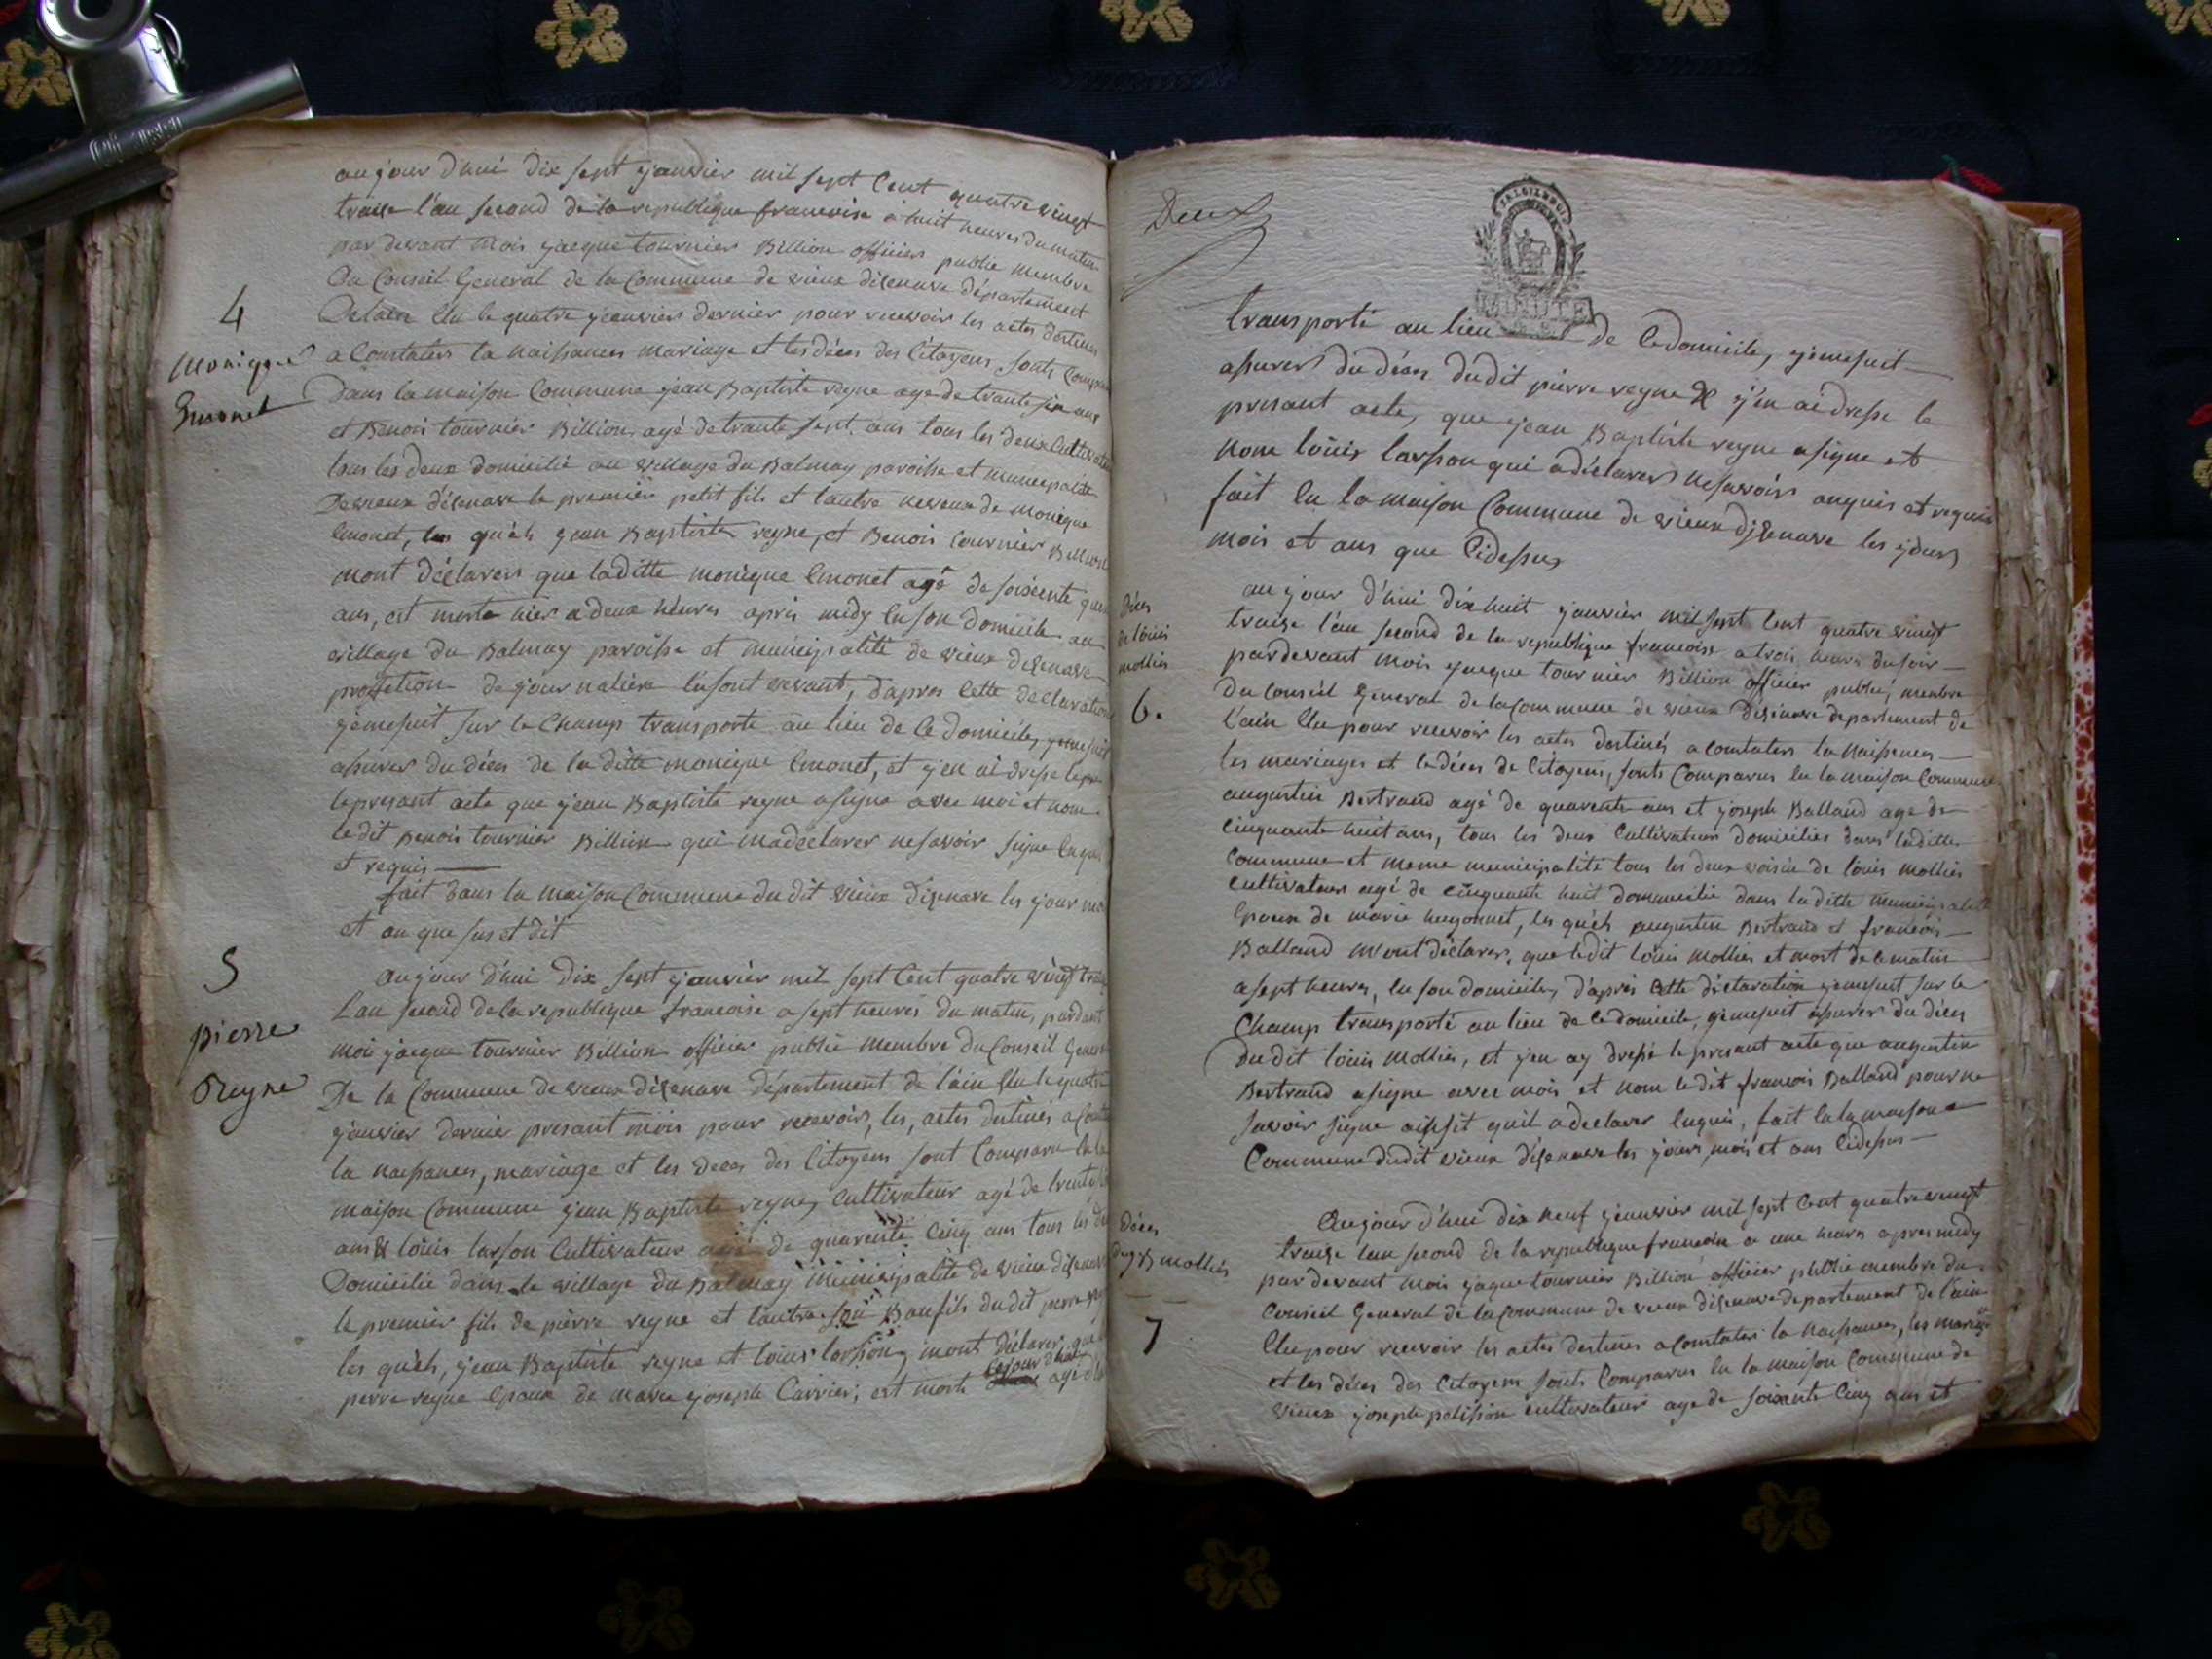 aujour d'hui dix sept janvier mil sept Cent quatre vingt
traise l'an second de la republique francoise a huit heures du matin
par devant Mois jacque tournier Billion officier public membre
Du Conseil General de la Commune de vieux disenave département
Delain Elu le quatre janvier dernier pour recevoir les actes destinés
4
a Constater la Naissances mariage et les déces des Citoyens sonts
Monique
Emonet
Dans la maison Commune jean Baptiste reyne age de trante six ans
et Benois tournier Billion, agé de trante sept ans tous les deux
tous les deux domicilié au village du Balmay paroisse et municipalité
De vieux disenave le premier petit fils et lautre neveux de monique
Emonet, les quels jean Baptiste reyne, et Benois tournier Billion
mont déclarer que laditte monique Emonet agé de soisente
ans, est morte hier a deux heures apres midy en son domicile au
village du Balmay paroisse et municipalité de vieux disenave
profetion de journaliere en sont vivant, dapres cette declaration
jemesuit sur le Champ transporté au lieu de Ce domicile, jemesuit
assurer du déces de la ditte monique Emonet, et j'en ai dresse
le presant acte que jean Baptiste reyne a signe avec moi et nom
ledit Benois tournier Billion qui madeclarer ne savoir signe
et requis
fait dans la maison Commune du dit vieux disenave les jour
et an que sus et dit
5
Aujour d'hui dix sept janvier mil sept Cent quatre vingt
Lan second de la republique francoise a sept heures du matin,
pierre
moi jacque tournier Billion officier public membre du Conseil
Reyne
De la Commune de vieux disenave département de l'ain Elu le quatre
janvier dernier presant mois pour recevoir, les, actes destinés
la naissances, mariage et les deces des Citoyens sont Comparu
maison Commune jean Baptiste reyne, Cultivateur agé de
ans & loüis larson Cultivateur agé de quarente Cinq ans tous les
Domicilie dans le village du Balmay municipalité de vieux disenave
le premier fils de pierre reyne et lautre son Baufils dudit pierre
les quels, jean Baptiste reyne et loüis larson, mont déclarer,
cejour d'hui
perre reyne Epoux de marie joseph Carrier, est morte agé
Deux
MINUTE
transporté au lieu de Ce domicile, jemesuit
assurer du déces dudit pierre reyne & j'en ai dresse le
presant acte, que jean Baptiste reyne a signe et
nom loüis larson qui a déclarer ne savoir anquis et requis
fait En la maison Commune de vieux disenave les jours
mois et ans que Cidessus
Déces
de loüis
mollies
6.
au jour d'hui dix huit janvier mil sept Cent quatre vingt
traise l'an second de la republique francoise a trois heures du soir
pardevant mois jacque tournier Billion officier public, membre
du Conseil General de la Commune de vieux disenave departement de
l'ain Elu pour recevoir les actes destinés a Constater la Naissences
les mariages et le déces de Citoyens, sonts Comparus En la maison Commune
augustin Bertrand agé de quarente ans et joseph Balland age de
Cinquante huit ans, tous les deux Cultivateurs domiciliés dans laditte
Commune et meme municipalité tous les deux voisin de loüis mollies
Cultivateur agé de Cinquante huit dommicilié dans la ditte municipalité
Epoux de marie hugonnet, les quels augustin Bertrand et francois
Balland m'ont déclarer, que ledit loüis mollies et mort de ce matin
a sept heures, En son domicile, d'après Cette declaration jemesuit sur le
Champ transporté au lieu de Ce domicile, jemesuit assurer du déces
Du dit loüis mollies, et j'en ay dressé le presant acte que augustin
Bertrand a signe avec mois et nom le dit francois Balland pour ne
savoir signe aissit quil a declarer Enquis, fait En la maison
Commune dudit vieux disenave les jours mois et ans Cidessus
Déces
du j B mollies
7
Aujour d'hui dix neuf janvier mil sept Cent quatre vingt
traise l'an second de la republique francoise a une heures apres midy
par devant Mois jaque tournier Billion officier public membre du
Conseil General de la Commune de vieux disenave departement de l'ain
Elu pour recevoir les actes destinés a Constater la Naissances, les mariage
et les déces des Citoyens sonts Comparus En la maison Commune de
vieux joseph pelisson Cultivateur age de soixante Cinq ans et